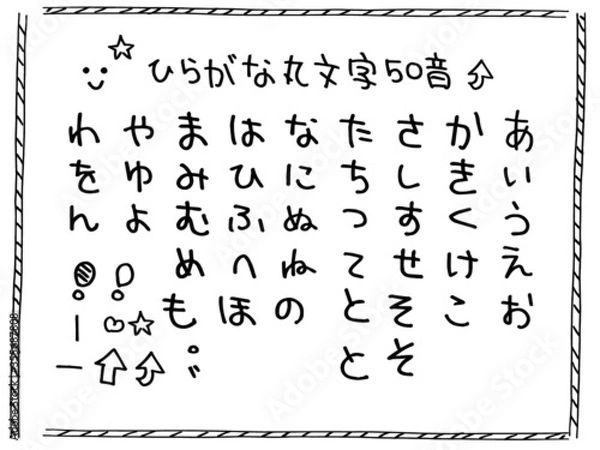 ひらがな丸文字50音
あいうえお
かきくけこ
さしすせそそ
たちつてとと
なにぬねの
はひふへほ
まみむめも゜゛
やゆよ
わをん
Adobe Stock